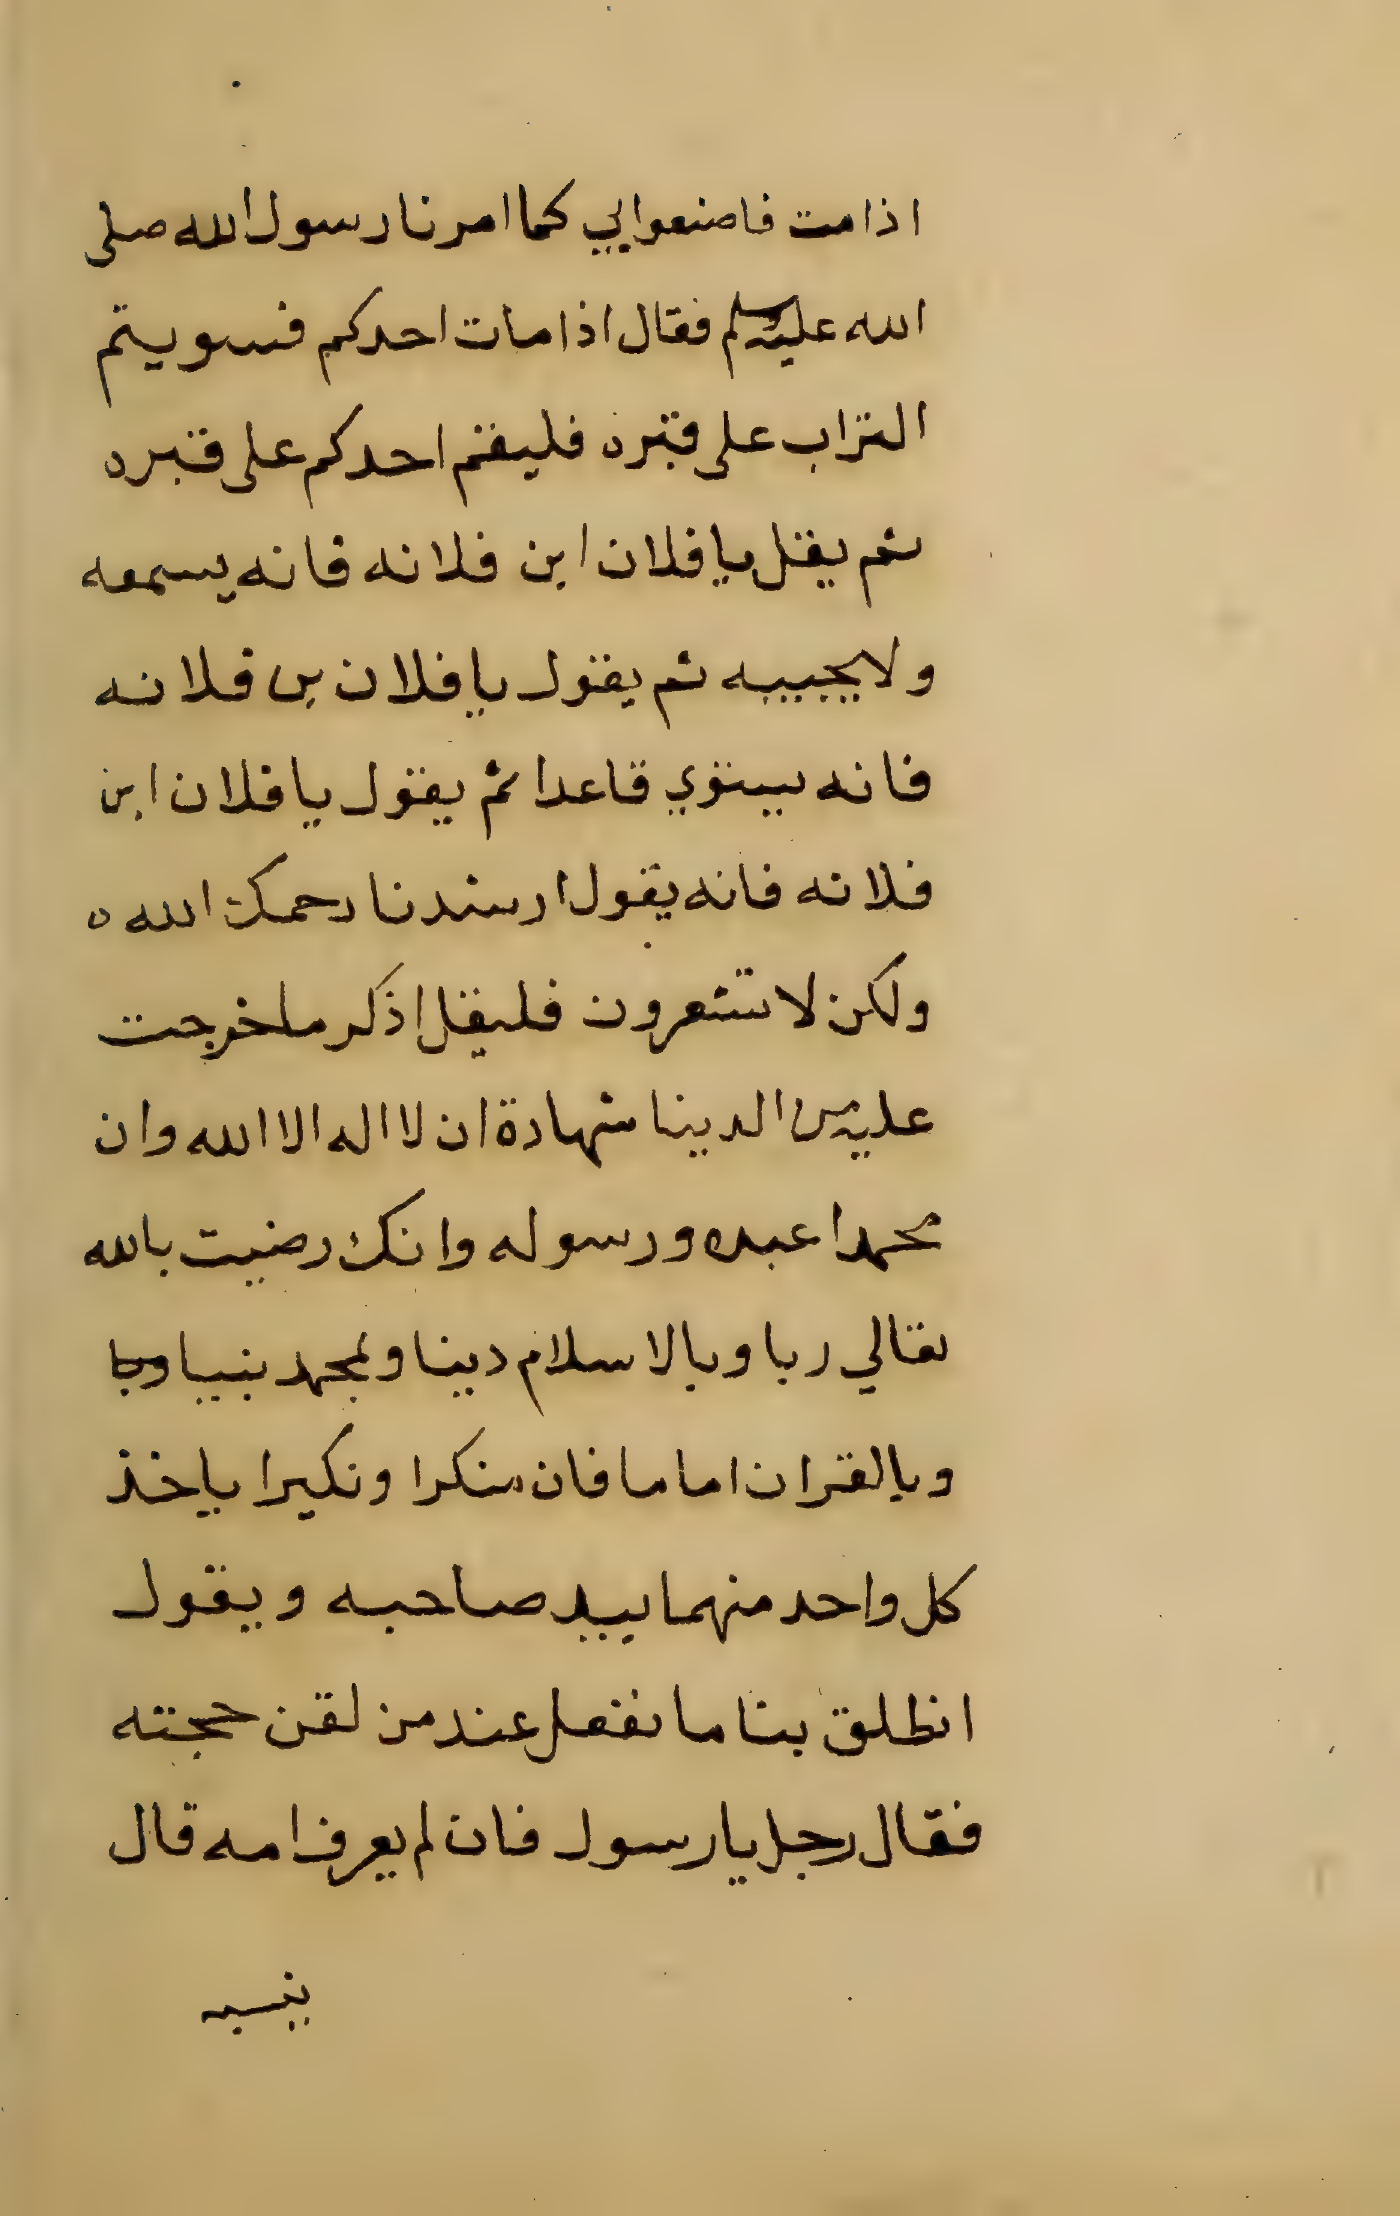 اذا مت فاصنعوا بي كما امرنا رسول الله صلى
الله عليه وسلم فقال اذا مات احدكم فسويتم
التراب على قبره فليقم احدكم على قبره
ثم يقل يا فلان ابن فلانه فانه يسمعه
ولا يجيبه ثم يقول يا فلان بن فلانه
فانه يستوي قاعدا ثم يقول يا فلان ابن
فلانه فانه يقول ارشدنا رحمك الله ه
ولكن لا تشعرون فليقل اذكر ما خرجت
عليه من الدينا شهادة ان لا اله الا الله وان
محمدا عبده ورسوله وانك رضيت بالله
تعالي ربا وبالاسلام دينا وبمحمد نبيا
وبالقران اماما فان منكرا ونكيرا ياخذ
كل واحد منهما بيد صاحبه ويقول
انطلق بنا ما نفعل عند من لقن حجته
فقال رجل يا رسول فان لم يعرف امه قال
ينسبه